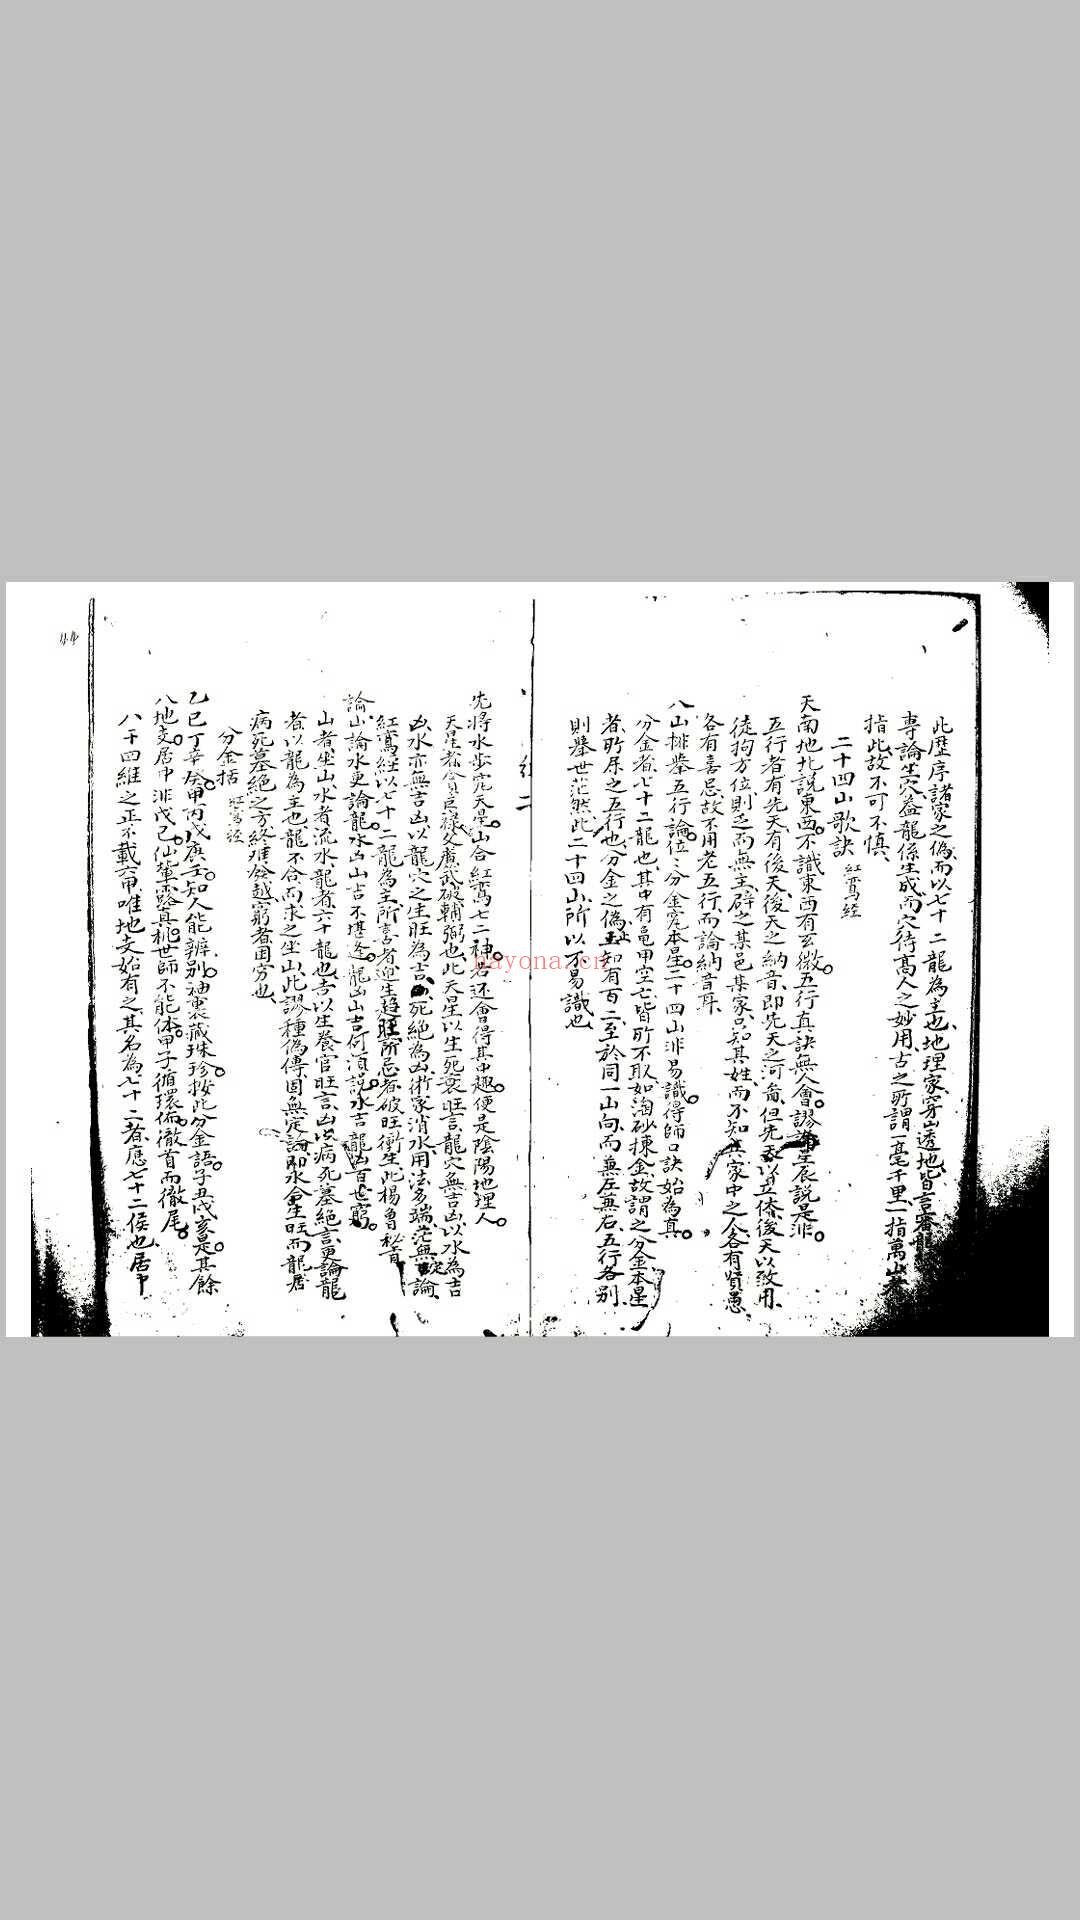 此歷序諸家之偽、而以七十二龍為主也、地理家穿山透地、皆言審龍
專論坐穴、蓋龍係生成、而穴待高人之妙用、古之所謂一毫千里、一指萬山者
指此、故不可不慎、
二十四山歌訣 紅鸞經
天南地北說東西。不識東西有玄微。五行真訣無人會。謬談星辰説是非。
五行者、有先天、有後天、後天之納音、即先天之河圖、但先天以立体、後天以致用、
徒拘方位、則乏而無主、辟之某邑某家、只知其姓、而不知其家中之人、各有賢愚、
各有喜忌、故不用老五行、而論納音耳、
八山排舉五行論。位々分金穴本星。二十四山非易識。得師口訣始為真。
分金者、七十二龍也、其中有龜甲空亡、皆所不取、如淘砂揀金、故謂之分金、本星
者、所屎之五行也、分金之偽、上知有百二、至於同一山向、而兼左兼右、五行各別、
則舉世茫然、此二十四山、所以不易識也、
紅 二
先將水步定天星。山合紅鸞七二神。若还會得其中趣。便是陰陽地理人。
天星者、貪巨祿文廉武破輔弼也、此天星以生死衰旺言、龍穴無吉凶、以水為吉
凶、水亦無吉凶、以龍穴之生旺為吉、死絕為凶、術家消水用法多端、茫無定論、
紅鸞經、以七十二龍為主、所言者迎生趨旺、所忌者破旺衝生、此楊曾秘旨
論山論水更論龍。水凶山吉不堪逢。龍凶山吉何須說。水吉龍凶百世窮。
山者坐山、水者流水、龍者六十龍也、吉以生養官旺言、凶以病死墓絕言、更論龍
者、以龍為主也、龍不合而求之坐山、此謬種偽傳、固無定論、即水合生旺、而龍居
病死墓絕之方、終难發越、窮者困穷也、
分金括 紅鸞經
乙巳丁辛癸。甲丙戊庚壬。知人能辨别。袖裏藏珠珍。按此分金語。子丑戌亥是。其餘
八地支。居中非戊己。仙輩露真机。世師不能体。甲子循環佈。徹首而徹尾。
八干四維之正、不載六甲、唯地支始有之、其名為七十二者、應七十二候也、居中
44
nayona.cn